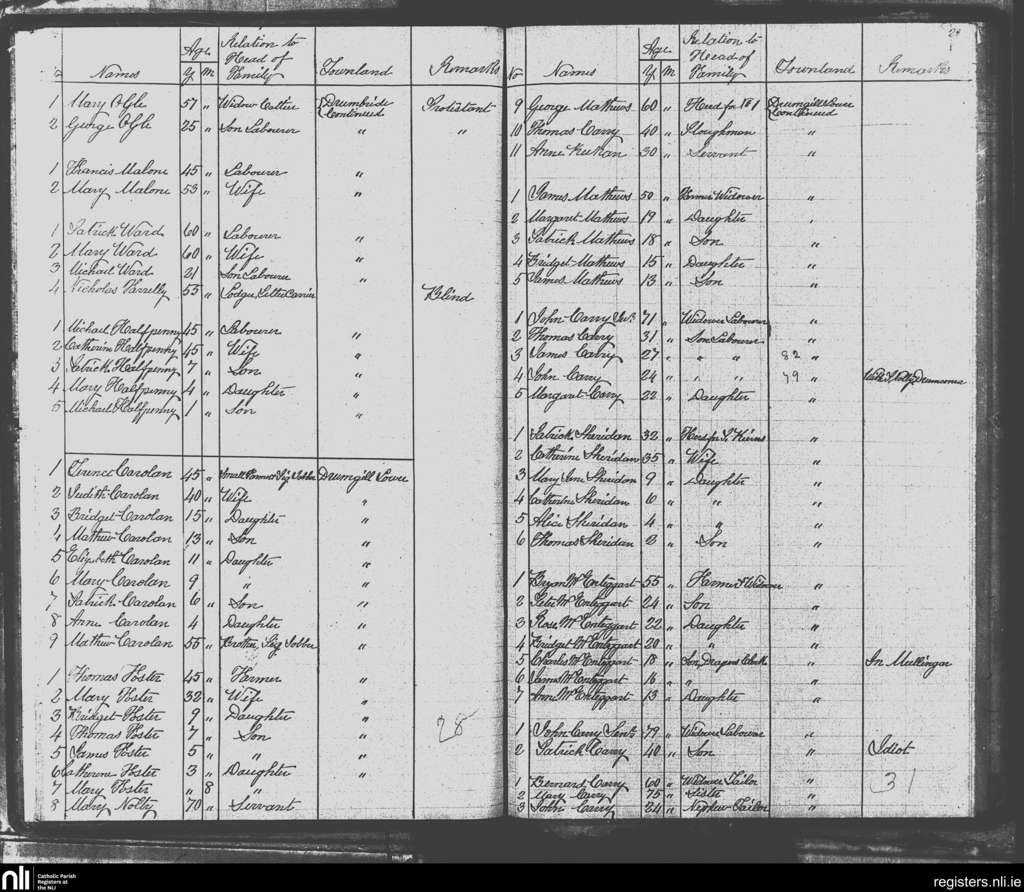 No Names Age Y M Relation to Head of Family Townland Remarks
1 Mary Ogle 57 " Widow Cottier Drumbride Continued Protestant
2 George Ogle 25 " Son Labourer " "
1 Francis Malone 45 " Labourer "
2 Mary Malone 53 " Wife "
1 Patrick Ward 60 " Labourer "
2 Mary Ward 60 " Wife "
3 Michael Ward 21 Son Labourer "
4 Nicholas Farrelly 53 " Lodger, Letter Carrier Blind
1 Michael Halfpenny 45 " Labourer "
2 Catherine Halfpenny 45 " Wife "
3 Patrick Halfpenny 7 " Son "
4 Mary Halfpenny 4 " Daughter "
5 Michael Halfpenny 1 " Son "
1 Terence Carolan 45 " Small Farmer Pig Jobber Drumgill Lower
2 Judith Carolan 40 " Wife "
3 Bridget Carolan 15 " Daughter "
4 Mathew Carolan 13 " Son "
5 Elizabeth Carolan 11 " Daughter "
6 Mary Carolan 9 " "
7 Patrick Carolan 6 " Son "
8 Anne Carolan 4 Daughter "
9 Mathew Carolan 55 " Brother, Pig Jobber "
1 Thomas Foster 45 " Farmer "
2 Mary Foster 32 " Wife "
3 Bridget Foster 9 " Daughter "
4 Thomas Foster 7 " Son "
5 James Foster 5 " " "
6 Catherine Foster 3 " Daughter "
7 Mary Foster " 8 " "
8 Mary Nolty 70 " Servant "
28
29
No Names Age Y M Relation to Head of Family Townland Remarks
9 George Mathews 60 " Herd for Drumgill Lower Continued
10 Thomas Carry 40 " Ploughman "
11 Anne Keenan 30 " Servant "
1 James Mathews 50 " Farmer Widower "
2 Margaret Mathews 19 " Daughter "
3 Patrick Mathews 18 " Son "
4 Bridget Mathews 15 " Daughter "
5 James Mathews 13 " Son "
1 John Carry 71 " Widower Labourer "
2 Thomas Carry 31 " Son Labourer "
3 James Carry 27 " " " 82 "
4 John Carry 24 " " " 79 "
5 Margaret Carry 22 " Daughter "
1 Patrick Sheridan 32 " Herd for "
2 Catherine Sheridan 35 " Wife "
3 Mary Jane Sheridan 9 " Daughter "
4 Catherine Sheridan 6 " " "
5 Alice Sheridan 4 " " "
6 Thomas Sheridan " Son "
1 Bryan McEnteggart 55 " Farmer Widower "
2 Peter McEnteggart 24 " Son "
3 Rose McEnteggart 22 " Daughter "
4 Bridget McEnteggart 20 " " "
5 Charles McEnteggart 18 " Son Drapers Clerk " In Mullingar
6 James McEnteggart 16 " " "
7 Anne McEnteggart 13 " Daughter "
1 John Carry Senr 79 " Widower Labourer "
2 Patrick Carry 40 " Son " Idiot
1 Bernard Carry 60 " Widower Tailor "
2 Mary Carry 75 " Sister "
3 John Carry 24 " Nephew Tailor "
31
nli Catholic Parish Registers at the NLI
registers.nli.ie